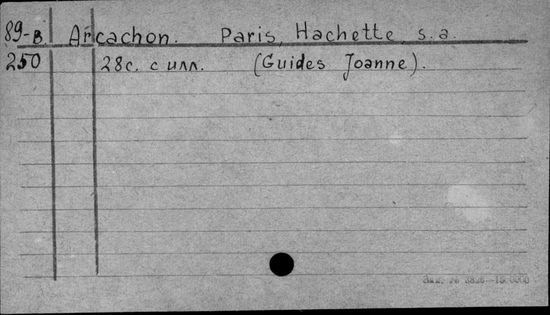 89-в. Arcachon. Paris, Hachette, s.a.
250 28с. с илл. (Guides Joanne).